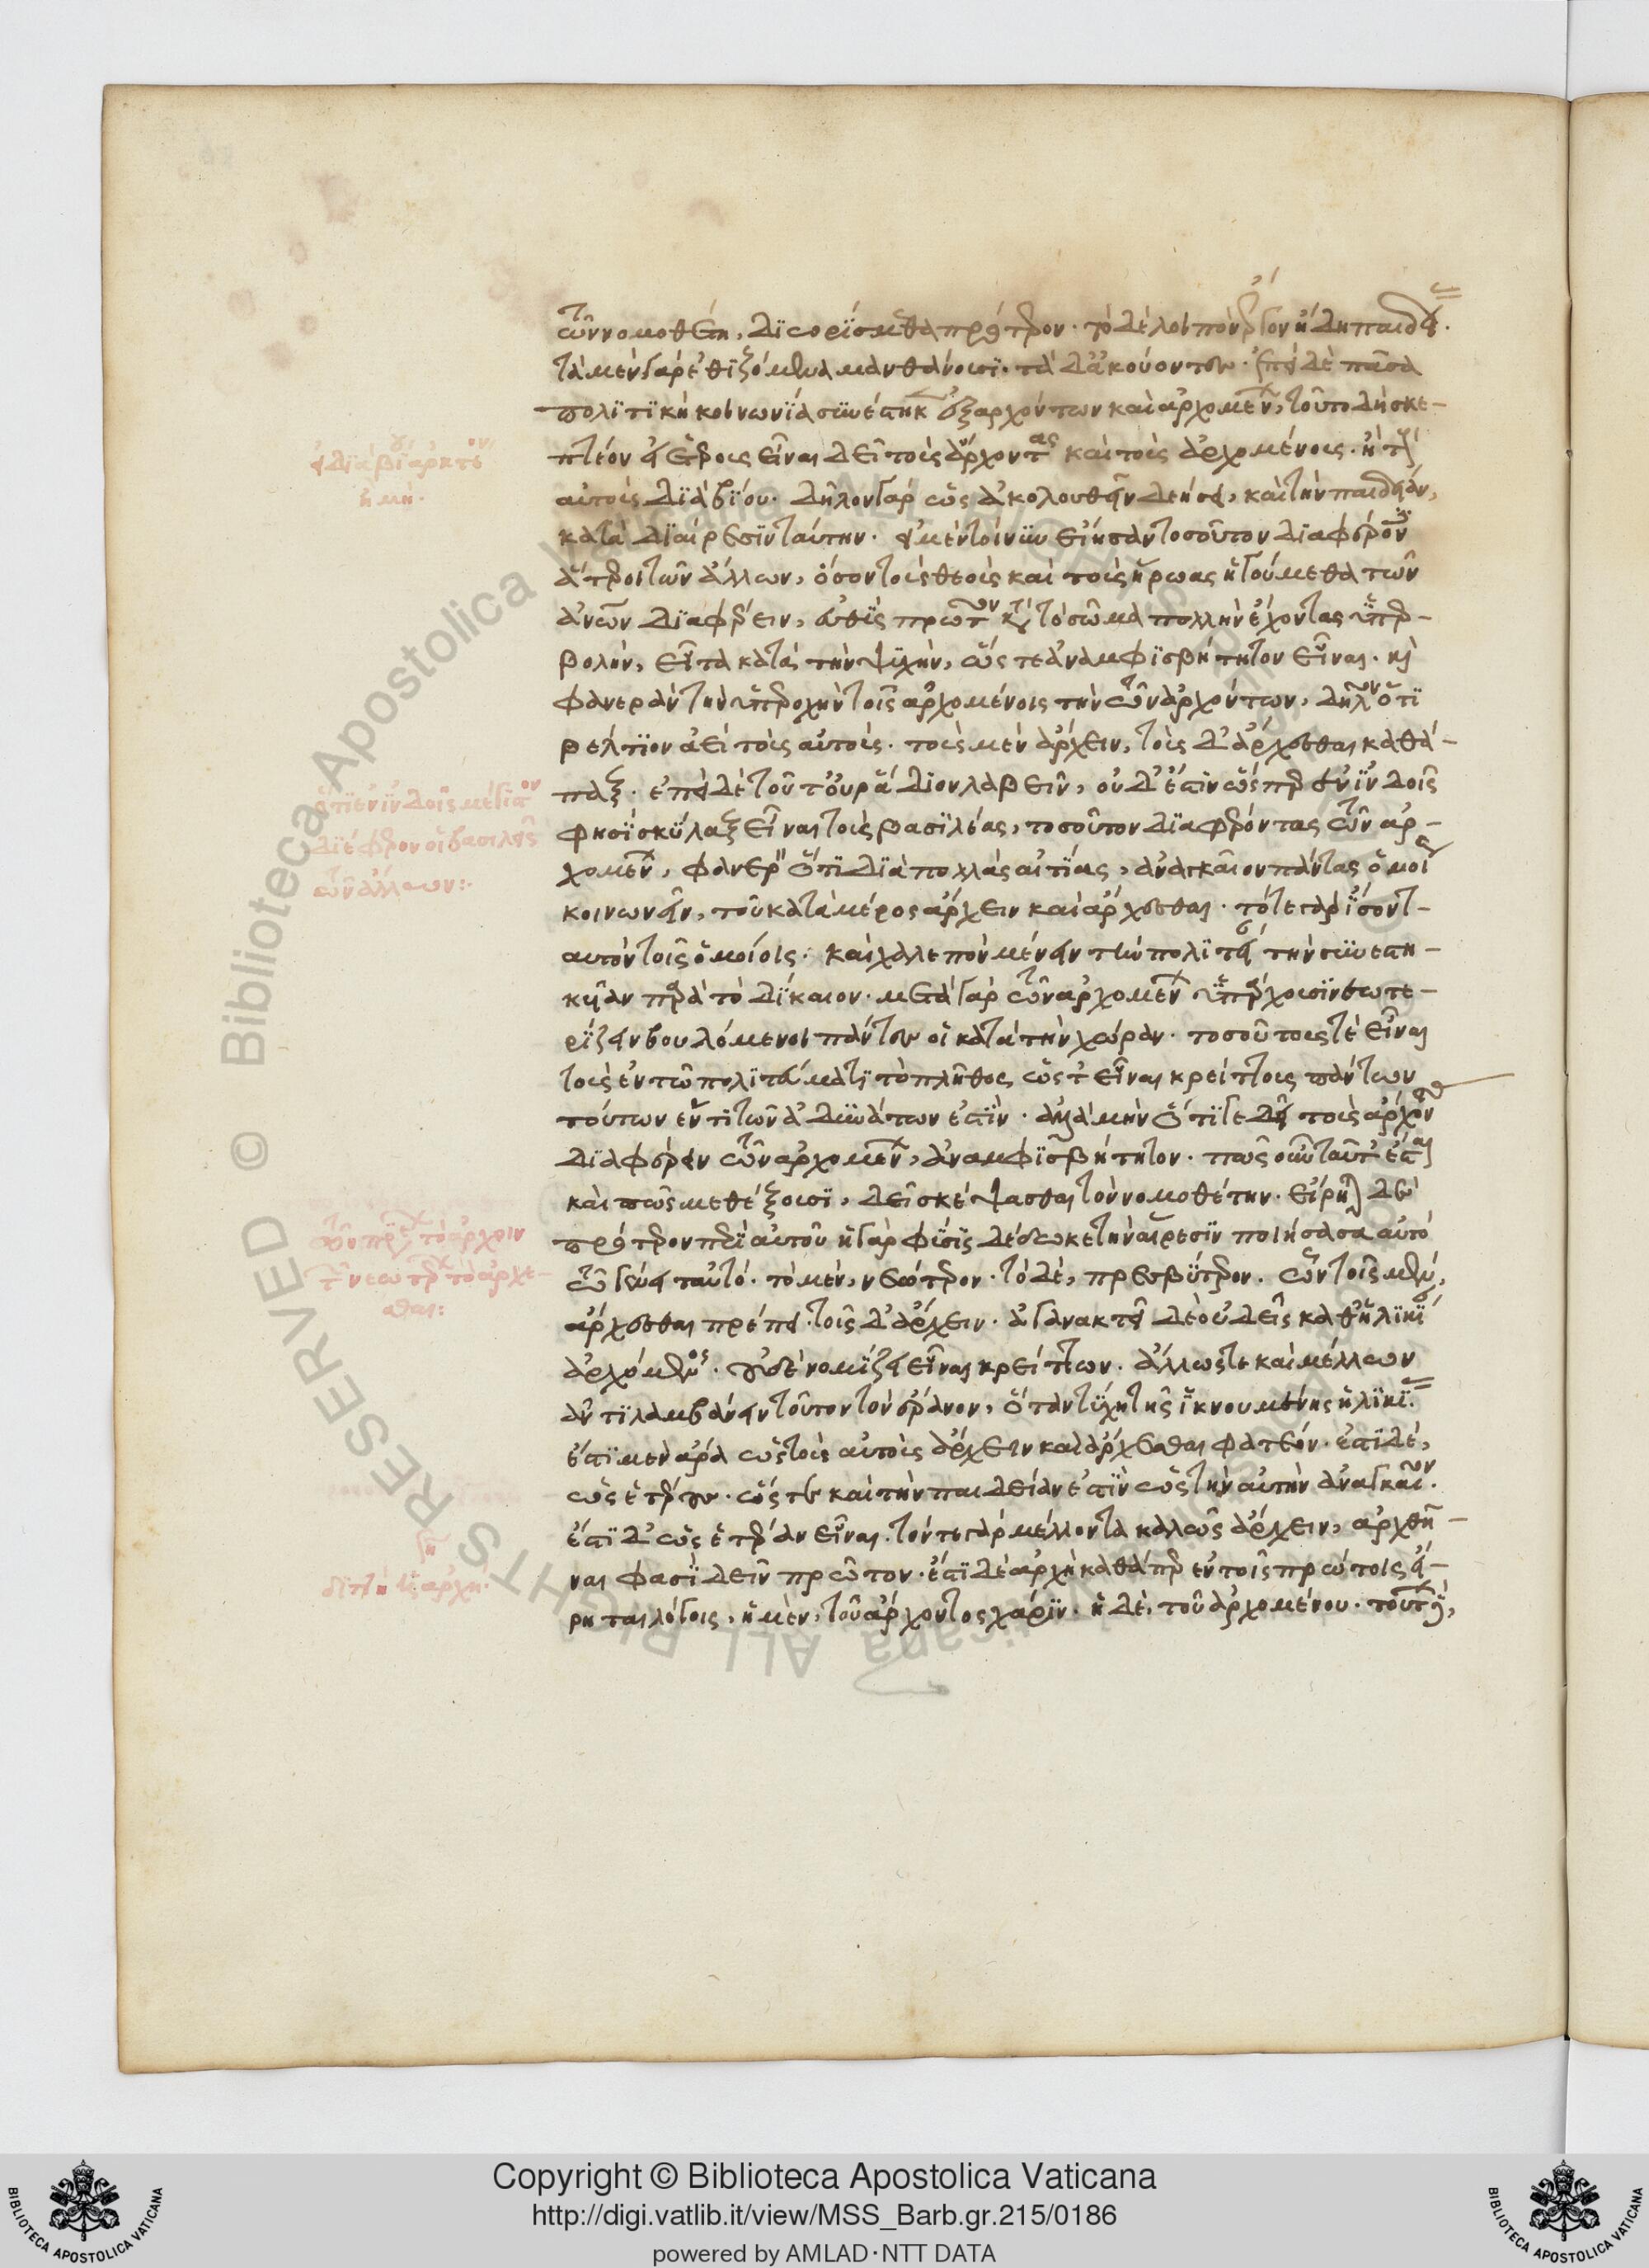 τῶν νομοθέτῃ, διωρίσμεθα πρότερον· τὸ δὲ λοιπὸν ἔργον ἤδη παιδείας·
τὰ μὲν γὰρ ἐθιζόμενα μανθάνουσι· τὰ δ' ἀκούοντες· ἐπεὶ δὲ πᾶσα
πολιτικὴ κοινωνία συνέστηκεν ἐξ ἀρχόντων καὶ ἀρχομένων, τοῦτο δὴ σκε-
πτέον εἰ ἑτέρους εἶναι δεῖ τοὺς ἄρχοντας καὶ τοὺς ἀρχομένους· ἢ τοὺς
αὐτοὺς διὰ βίου· δῆλον γὰρ ὡς ἀκολουθεῖν δεήσει, καὶ τὴν παιδείαν,
κατὰ διαίρεσιν ταύτην· εἰ μὲν τοίνυν εἴησαν τοσοῦτον διαφέροντες
ἅτεροι τῶν ἄλλων, ὅσον τοὺς θεοὺς καὶ τοὺς ἥρωας ἡγούμεθα τῶν
ἀνθρώπων διαφέρειν, εὐθὺς πρῶτον κατὰ τὸ σῶμα πολλὴν ἔχοντας ὑπερ-
βολήν, εἶτα κατὰ τὴν ψυχήν, ὥστε ἀναμφισβήτητον εἶναι· καὶ
φανερὰν τὴν ὑπεροχὴν τοῖς ἀρχομένοις τὴν τῶν ἀρχόντων, δῆλον ὅτι
βέλτιον ἀεὶ τοὺς αὐτούς· τοὺς μὲν ἄρχειν, τοὺς δ' ἄρχεσθαι καθά-
παξ· ἐπεὶ δὲ τοῦτ' οὐ ῥᾴδιον λαβεῖν, οὐδ' ἔστιν ὥσπερ ἐν ἰνδοῖς
φησὶ σκύλαξ εἶναι τοὺς βασιλέας, τοσοῦτον διαφέροντας τῶν ἀρ-
χομένων, φανερὸν ὅτι διὰ πολλὰς αἰτίας, ἀναγκαῖον πάντας ὁμοίως
κοινωνεῖν, τοῦ κατὰ μέρος ἄρχειν καὶ ἄρχεσθαι· τό τε γὰρ ἴσον τ-
αυτὸν τοῖς ὁμοίοις· καὶ χαλεπὸν μένειν τὴν πολιτείαν τὴν συνεστη-
κυῖαν παρὰ τὸ δίκαιον· μετὰ γὰρ τῶν ἀρχομένων ὑπάρχουσι νεωτε-
ρίζειν βουλόμενοι πάντες οἱ κατὰ τὴν χώραν· τοσούτους τὲ εἶναι
τοὺς ἐν τῷ πολιτεύματι τὸ πλῆθος, ὥστ' εἶναι κρείττους πάντων
τούτων ἕν τι τῶν ἀδυνάτων ἐστίν· ἀλλὰ μὴν ὅτι γε δεῖ τοὺς ἄρχοντας
διαφέρειν τῶν ἀρχομένων, ἀναμφισβήτητον· πῶς οὖν ταῦτ' ἔσται
καὶ πῶς μεθέξουσι, δεῖ σκέψασθαι τὸν νομοθέτην· εἴρηται δὲ
πρότερον περὶ αὐτοῦ ἡ γὰρ φύσις δέδωκε τὴν αἵρεσιν ποιήσασα αὐτὸ
τῷ γένει ταὐτό· τὸ μὲν, νεώτερον· τὸ δὲ, πρεσβύτερον· ὧν τοῖς μὲν,
ἄρχεσθαι πρέπει· τοῖς δ' ἄρχειν· ἀγανακτεῖ δὲ οὐδεὶς καθ' ἡλικίαν
ἀρχόμενος· οὐδὲ νομίζει εἶναι κρείττων· ἄλλως τε καὶ μέλλων
ἀντιλαμβάνειν τοῦτον τὸν ἔρανον, ὅταν τύχῃ τῆς ἱκνουμένης ἡλικίας·
ἔστι μὲν ἄρα ὡς τοὺς αὐτοὺς ἄρχειν καὶ ἄρχεσθαι φατέον· ἔστι δὲ,
ὡς ἑτέρους· ὥστε καὶ τὴν παιδείαν ἔστιν ὡς τὴν αὐτὴν ἀναγκαῖον·
ἔστι δ' ὡς ἑτέραν εἶναι· τόν τε γὰρ μέλλοντα καλῶς ἄρχειν, ἀρχθῆ-
ναι φασὶ δεῖν πρῶτον· ἔστι δὲ ἀρχὴ καθάπερ ἐν τοῖς πρώτοις εἴ-
ρηται λόγοις, ἡ μὲν, τοῦ ἄρχοντος χάριν· ἡ δὲ, τοῦ ἀρχομένου· τούτων,
εἰ διὰ βίου ἀρκτέον
ἢ μή·
ὅτι ἐν ἰνδοῖς μέγιστον
διέφερον οἱ βασιλεῖς
τῶν ἄλλων:
τῶν πρεσβυτέρων τὸ ἄρχειν
τῶν νεωτέρων τὸ ἄρχε-
σθαι:
διττὴ ἡ ἀρχή·
Copyright © Biblioteca Apostolica Vaticana
http://digi.vatlib.it/view/MSS_Barb.gr.215/0186
powered by AMLAD·NTT DATA
BIBLIOTECA APOSTOLICA VATICANA
BIBLIOTECA APOSTOLICA VATICANA